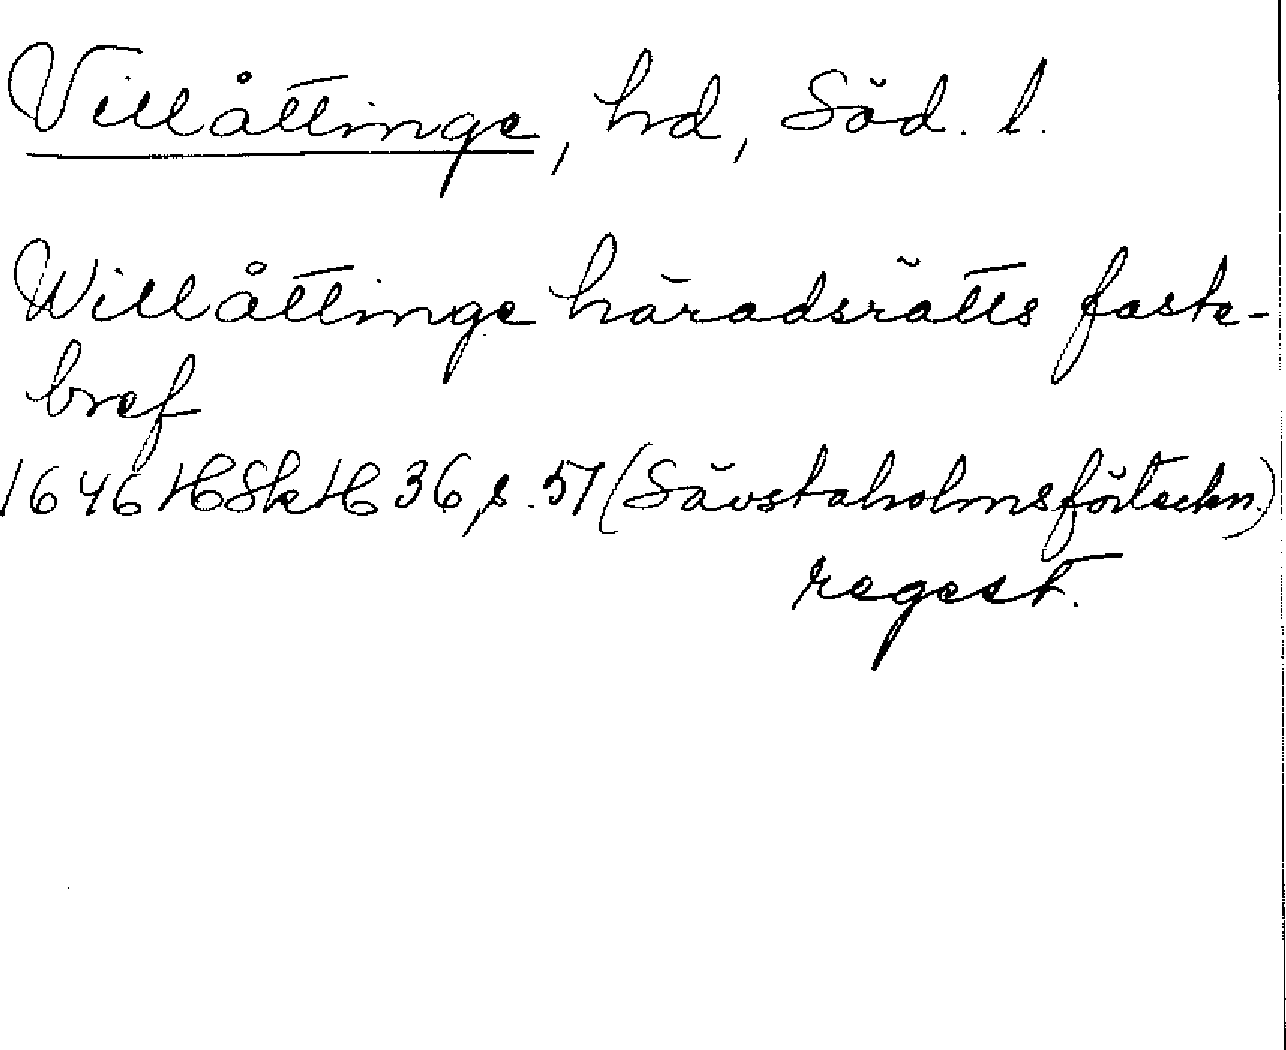 Villåttinge, hd, Söd. l.
Willåttinge häradsrätts faste-
bref
1646 HSkH 36, s. 57 (Sävstaholmsförteckn.)
regest.